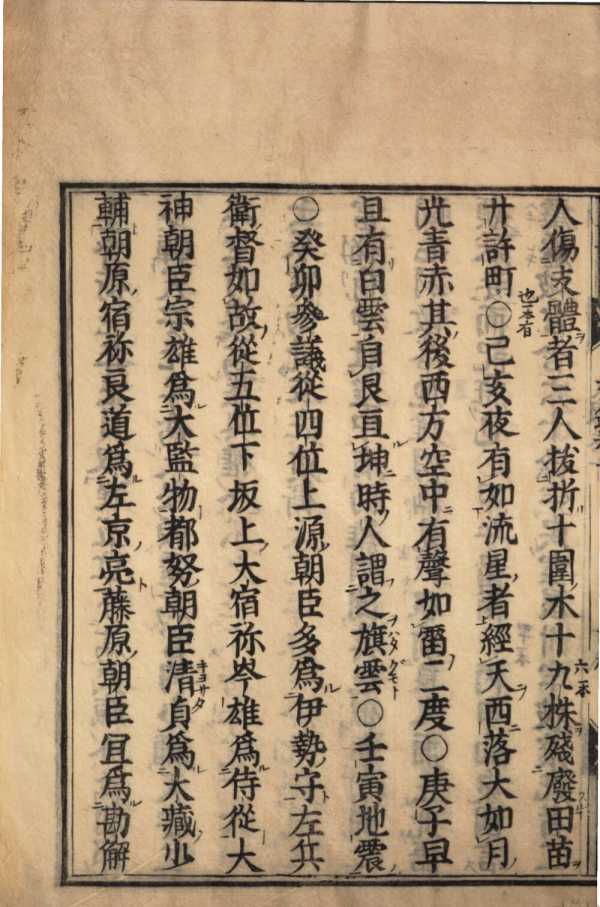 人傷支體者三人拔折十圍木十九株殘廢田苗
廾許町〇己亥夜有如流星者經天西落大如月
光青赤其後西方空中有聲如雷二度〇庚子早
旦有白雲自艮亘坤時人謂之旗雲〇壬寅地震
〇癸卯參議從四位上源朝臣多爲伊勢守左兵
衛督如故從五位下坂上大宿祢岑雄爲侍從大
神朝臣宗雄爲大監物都努朝臣清貞爲大藏少
輔朝原宿祢良道爲左京亮藤原朝臣冝爲勘解